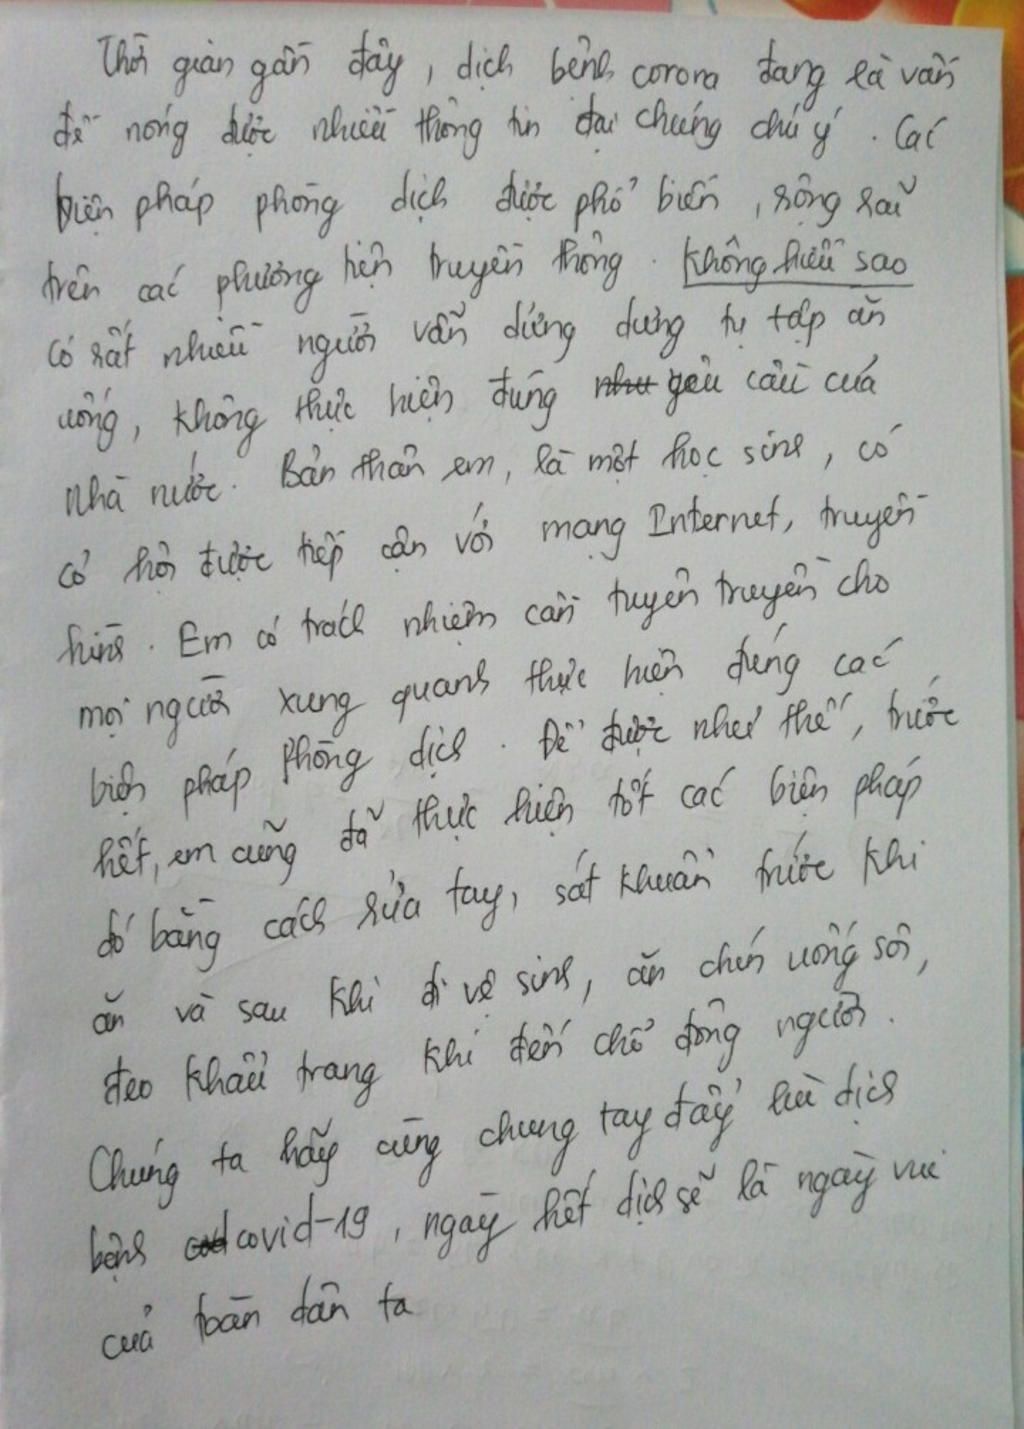 Thời gian gần đây, dịch bệnh corona đang là vấn
đề nóng được nhiều thông tin đại chúng chú ý. Các
biện pháp phòng dịch được phổ biến, rộng rãi
trên các phương tiện truyền thông. Không hiểu sao
có rất nhiều người vẫn dửng dưng tụ tập ăn
uống, không thực hiện đúng như yêu cầu của
nhà nước. Bản thân em, là một học sinh, có
cơ hội được tiếp cận với mạng Internet, truyền
hình. Em có trách nhiệm cần tuyên truyền cho
mọi người xung quanh thực hiện đúng các
biện pháp phòng dịch. Để được như thế, trước
hết, em cũng đã thực hiện tốt các biện pháp
đó bằng cách rửa tay, sát khuẩn trước khi
ăn và sau khi đi vệ sinh, ăn chín uống sôi,
đeo khẩu trang khi đến chỗ đông người.
Chúng ta hãy cùng chung tay đẩy lùi dịch
bệnh covid-19, ngày hết dịch sẽ là ngày vui
của toàn dân ta